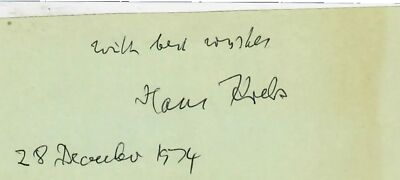 with best wishes
Hans Krebs
28 December 1974